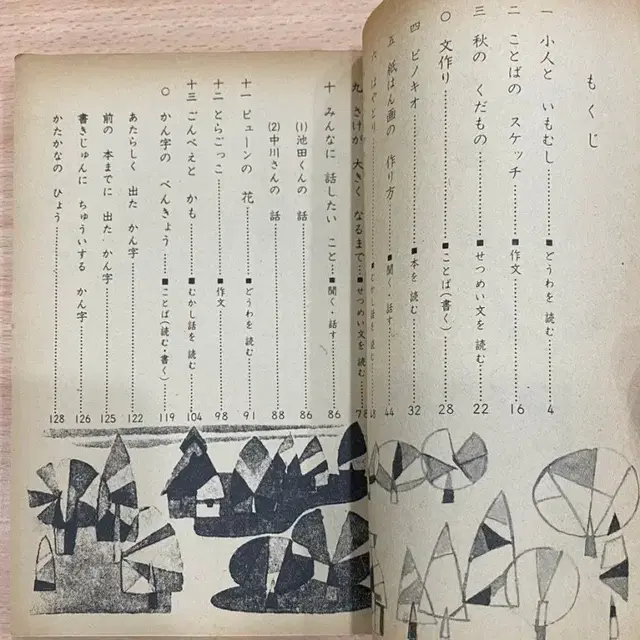 もくじ
一 小人と いもむし……■どうわを 読む……4
二 ことばの スケッチ……■作文……16
三 秋の くだもの……■せつめい文を 読む……22
○ 文作り……■ことば（書く）……28
四 ピノキオ……■本を 読む……32
五 紙はん画の 作り方……■聞く・話す……44
六 はやとり……■むかし話を 読む……48
九 さけが 大きく なるまで……■せつめい文を 読む……78
十 みんなに 話したい こと……■聞く・話す……86
(1) 池田くんの 話……86
(2) 中川さんの 話……88
十一 ピューンの 花……■どうわを 読む……91
十二 とらごっこ……■作文……98
十三 ごんべえと かも……■むかし話を 読む……104
○ かん字の べんきょう……■ことば（読む・書く）……119
あたらしく 出た かん字……122
前の 本までに 出た かん字……125
書きじゅんに ちゅういする かん字……126
かたかなの ひょう……128